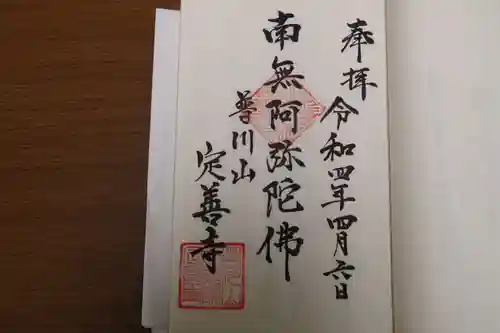 奉拝
令和四年四月六日
南無阿弥陀佛
普川山
定善寺